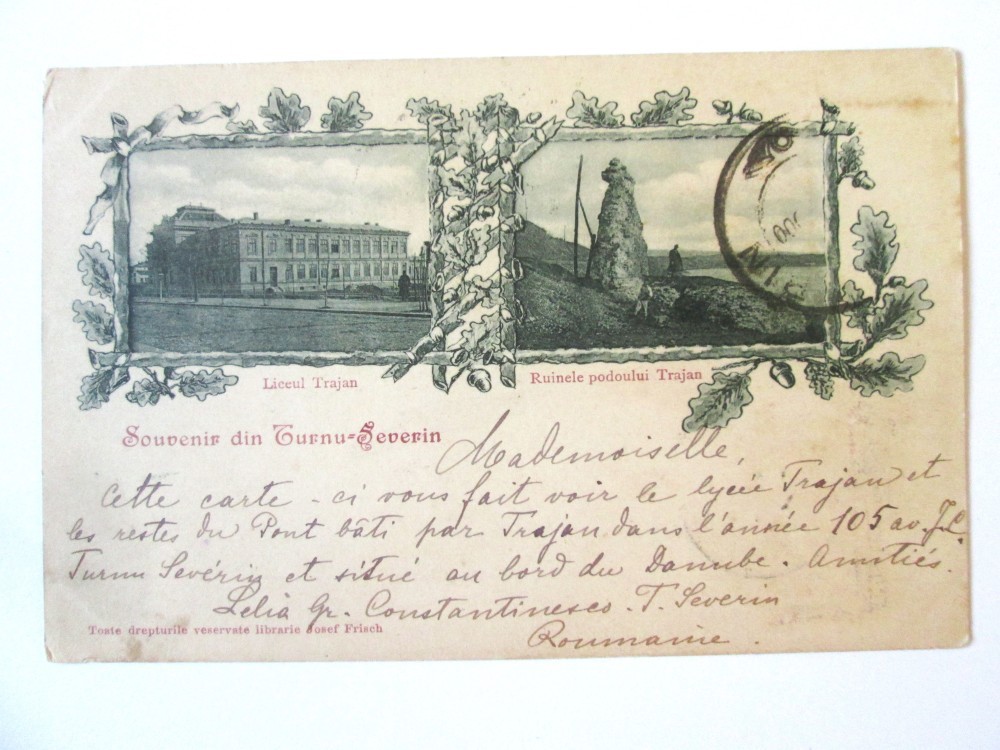 Liceul Trajan
Ruinele podoului Trajan
Souvenir din Turnu-Severin
Mademoiselle,
Cette carte-ci vous fait voir le lycée Trajan et
les restes du Pont bâti par Trajan dans l'année 105 av. J.C.
Turnu Sevérin et situé au bord du Danube. Amitiés.
Lelia Gr. Constantinesco. T. Severin
Roumanie.
Toate drepturile veservate librarie Josef Frisch